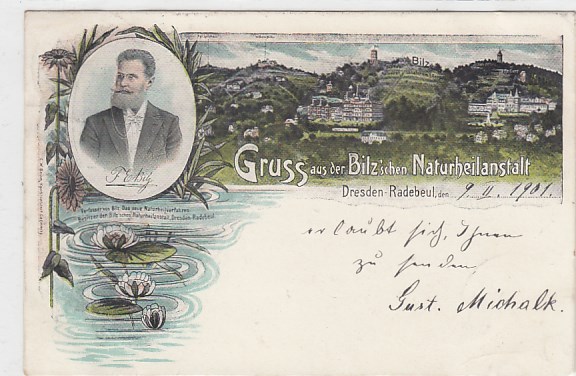 Bilz
F. E. Bilz
Verfasser von Bilz, Das neue Naturheilverfahren.
Besitzer der Bilz'schen Naturheilanstalt, Dresden-Radebeul.
Gruss aus der Bilz'schen Naturheilanstalt
Dresden-Radebeul, den 9. II. 1901.
erlaubt sich, Ihnen
zu senden,
Gust. Michalk.